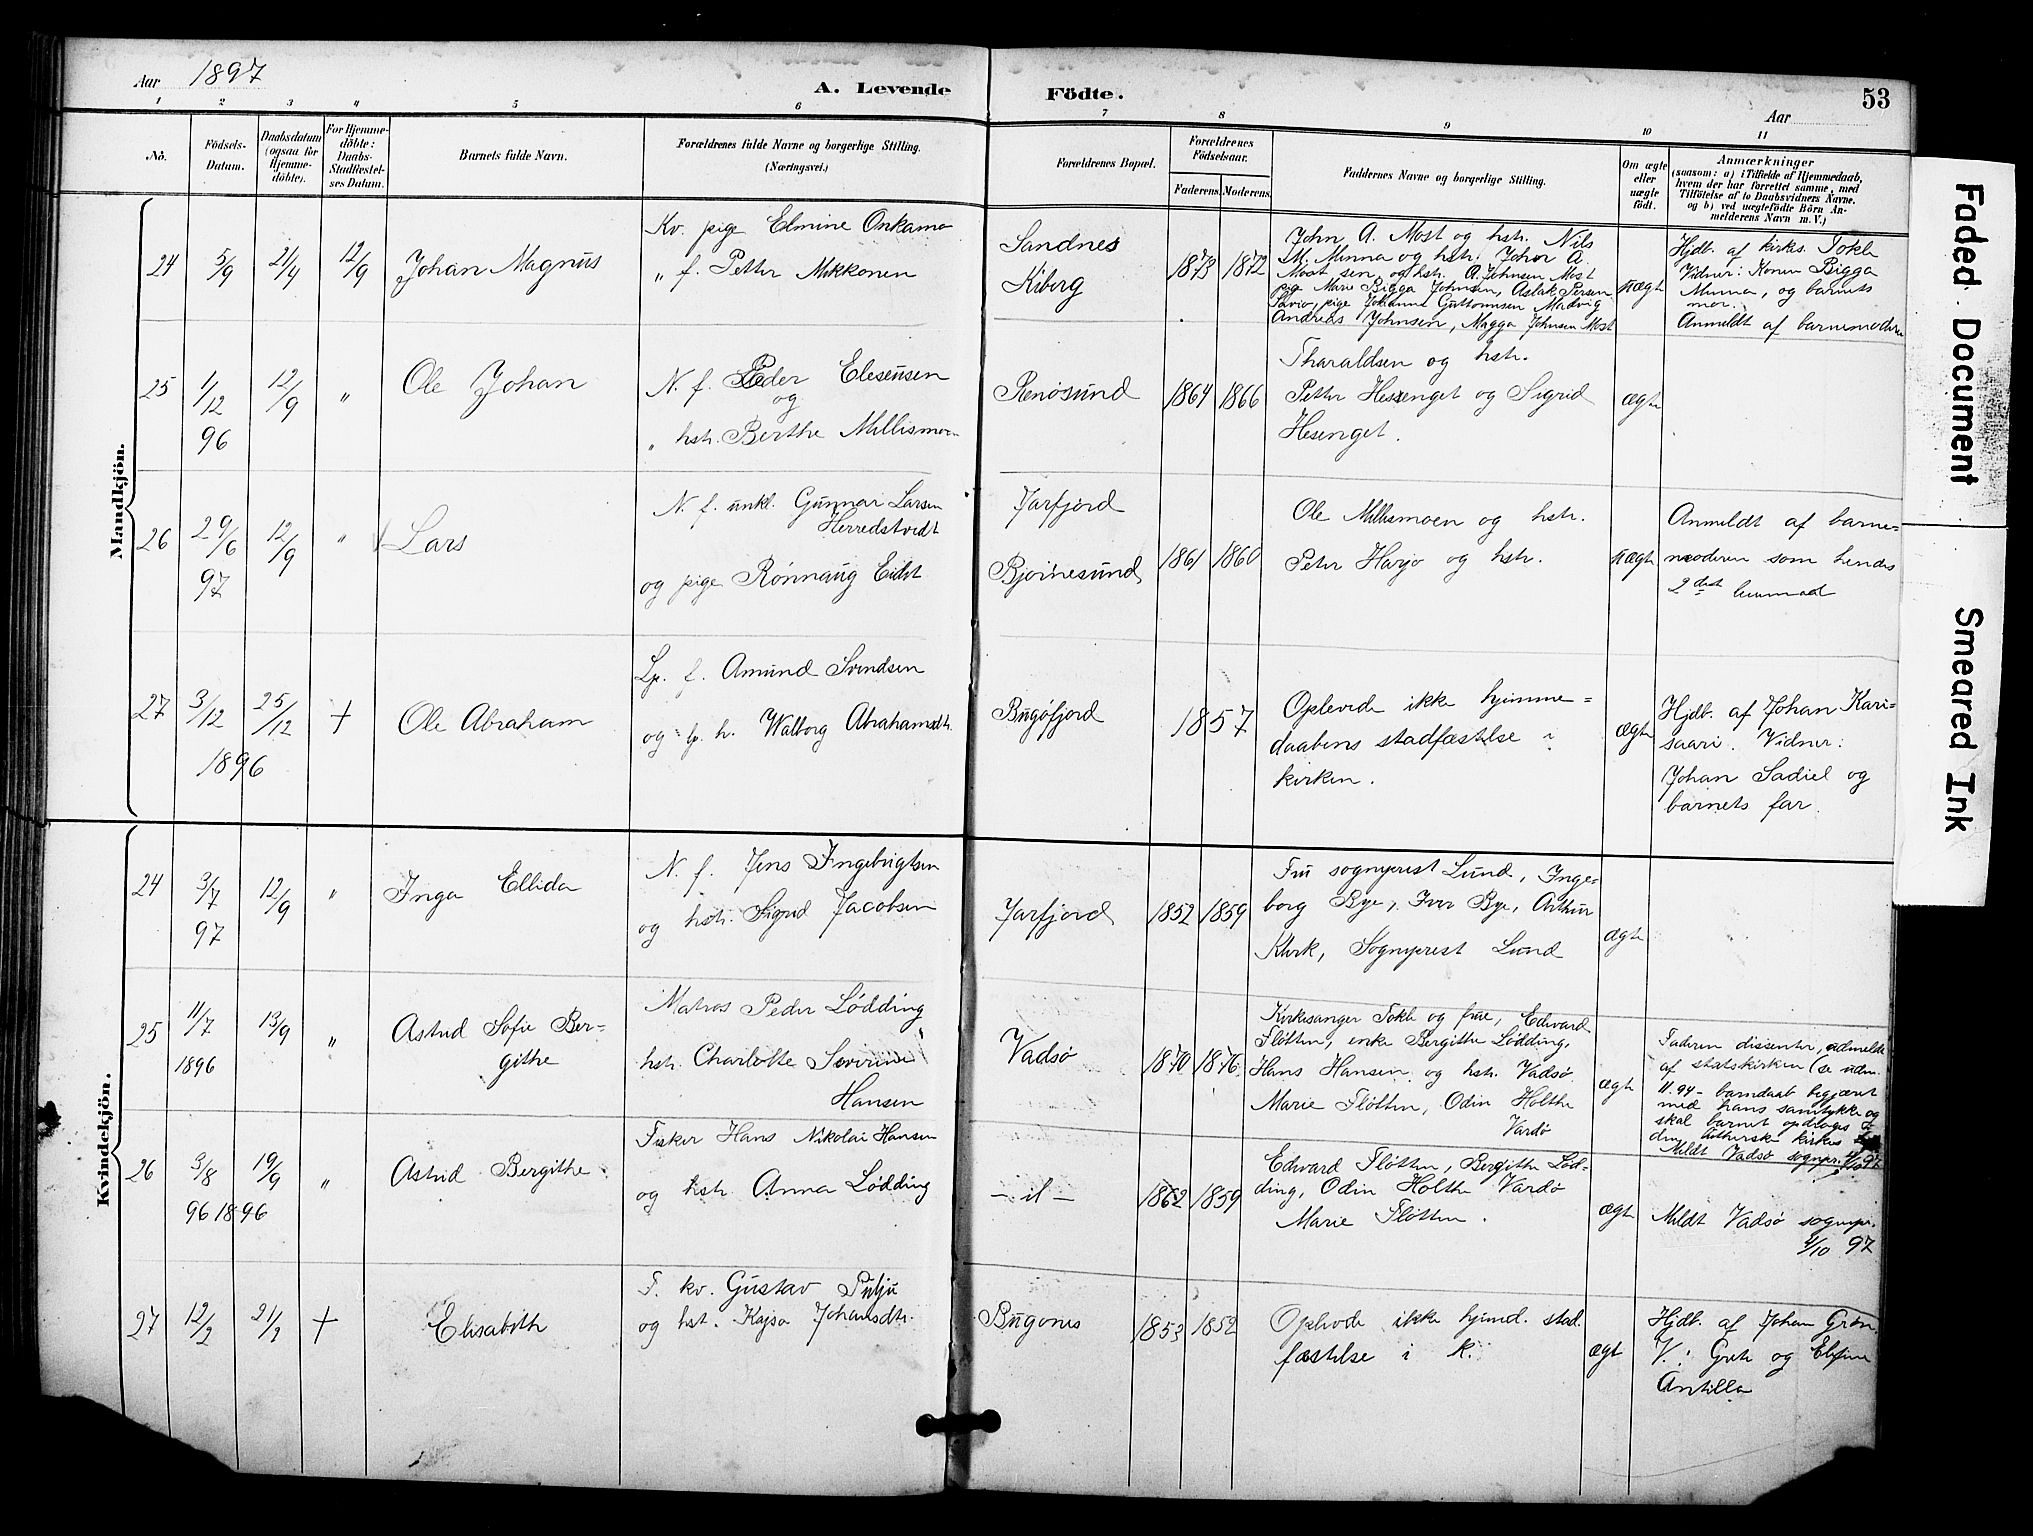 Aar 1897
A. Levende Födte.
Aar
53
1 2 3 4 5 6 7 8 9 10 11
No.
Födsels-
Datum.
Daabsdatum
(ogsaa for
Hjemme-
döbte).
For Hjemme-
döbte:
Daabs-
Stadfæstel-
ses Datum.
Barnets fulde Navn.
Forældrenes fulde Navne og borgerlige Stilling.
(Næringsvei.)
Forældrenes Bopæl.
Forældrenes
Födselsaar.
Faderens. Moderens.
Faddernes Navne og borgerlige Stilling.
Om ægte
eller
uægte
födt.
Anmærkninger
(saasom: a) i Tilfælde af Hjemmedaab,
hvem der har forrettet samme, med
Tilföielse af to Daabsvidners Navne.
og b) ved uægtefödte Börn An-
melderens Navn m. V.)
Mandkjön.
24
5/9
21/4
12/9
Johan Magnus
Kv. pige Elmine Onkamo
" f. Petter Mikkonen
Sandnes
Kiberg
1873 1872
John A. Most og hstr. Nils
M. Minna og hstr. Johan A.
Most sen. og hstr. A. Johnsen Most
pig Marie Bigga Johnsen, Aslak Persen
Savio, pige Johanne Guttormsen Madvig
Andreas Johnsen, Magga Johnsen Most
uægte
Hjdb. af kirks. Tokle
Vidner: Konen Bigga
Minna, og barnets
mor.
Anmeldt af barnemoderen
25
1/12
96
12/9
"
Ole Johan
N. f. Peder Eleseusen
og
" hstr. Berthe Millismoen
Renøsund
1864 1866
Tharaldsen og hstr.
Petter Hesenget og Sigrid
Hesenget.
ægte
26
29/6
97
12/9
"
Lars
N. f. unkl. Gunnar Larsen
Herredstvedt
og pige Rönnaug Eidet
Jarfjord
Bjørnesund
1861 1860
Ole Millismoen og hstr.
Peter Harjo og hstr.
uægte
Anmeldt af barne-
moderen som hendes
2det leiermaal
27
3/12
25/12
1896
+
Ole Abraham
Lp. f. Amund Svendsen
og lp. h. Walborg Abrahamsdtr.
Bugöfjord
1857
Oplevede ikke hjemme-
daabens stadfæstelse i
kirken.
ægte
Hjdb. af Johan Kari-
saari. Vidner:
Johan Sadiel og
barnets far.
Kvindekjön.
24
3/7
97
12/9
"
Inga Ellida
N. f. Jens Ingebrigtsen
og hstr. Sigrid Jacobsen
Jarfjord
1852 1859
Fru sogneprest Lund, Inge-
borg Bye, Iver Bye, Arthur
Klerk, Sogneprest Lund
ægte
25
11/7
1896
13/9
"
Astrid Sofie Ber-
githe
Matros Peder Lødding
hstr. Charlotte Severine
Hansen
Vadsø
1870 1876.
Kirkesanger Tokle og frue, Edward
Flötten, enke Bergithe Lødding,
Hans Hansen og hstr. Vadsø
Marie Fløtten, Odin Holthe
Vardø
ægte
Faderen dissenter, udmeldt
af statskirken (se udm.
11.94 - barnedaab begjæret
med hans samtykke og
skal barnet opdrages i
den lutherske kirkes
Meldt Vadsø sognpr. 4/10 97
26
3/8
96
19/9
1896
"
Astrid Bergithe
Fisker Hans Nikolai Hansen
og hstr Anna Lødding
- il -
1862 1859
Edward Fløtten, Bergithe Lød-
ding, Odin Holthe Vardø
Marie Fløtten.
ægte
Meldt Vadsø sognepr.
4/10 97
27
12/2
21/2
+
Elisabeth
F. kv. Gustav Puhju
og hst. Kajsa Johansdtr.
Bugønes
1853 1852
Oplevde ikke hjemd. stad.
fæstelse i K.
ægt
Hjdb. af Johan Grön.
V.: Grete og Elfine
Antilla
Faded Document
Smeared Ink